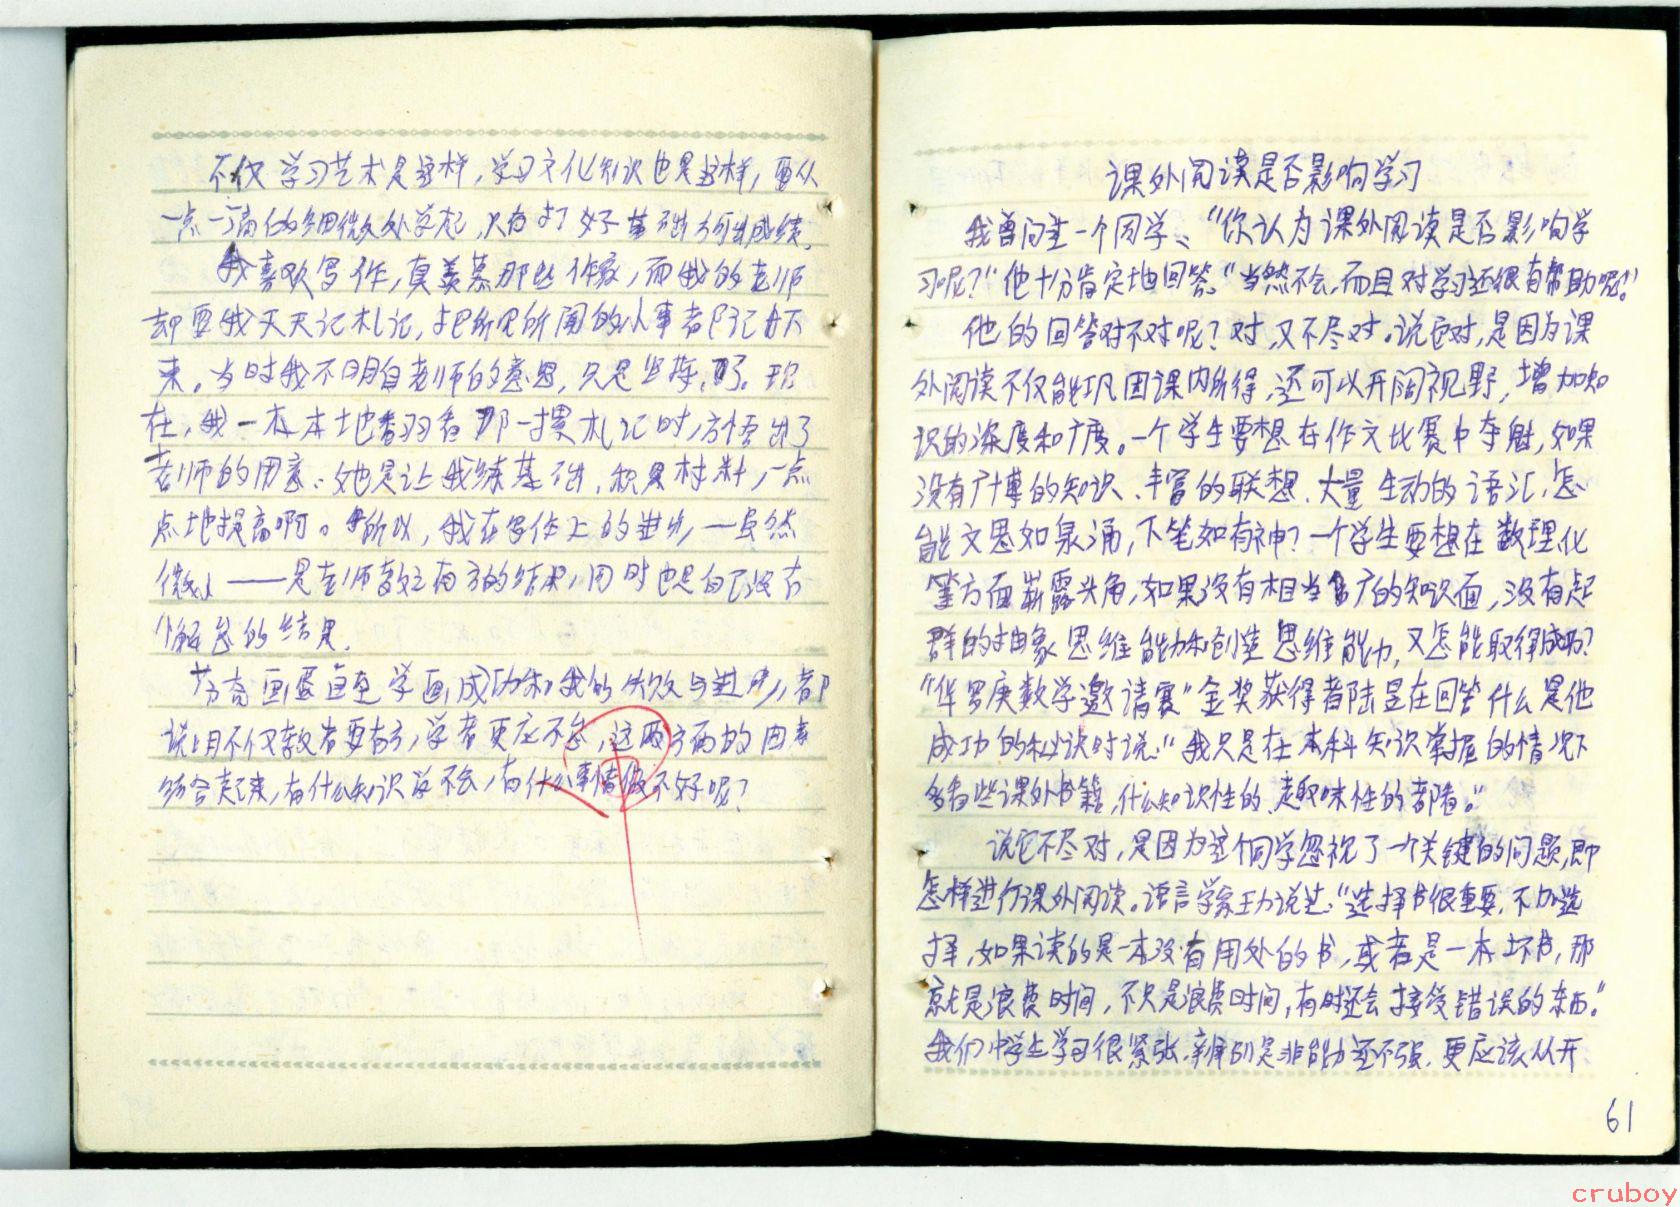 不仅学习艺术是这样，学习文化知识也是这样，要从
一点一滴的细微处学起，只有打好基础方可出成绩。
我喜欢写作，真羡慕那些作家，而我的老师
却要我天天记札记，把所见所闻的人事都记下
来。当时我不明白老师的意思，只是照了。现
在，我一本本地翻看那一摞札记时，方悟出了
老师的用意：她是让我练基础，积累材料，一点
点地提高啊。所以，我在写作上的进步，——虽然
微小——是老师教之有方的结果，同时也是自己没有
懈怠的结果。
芬奇画蛋直至学画成功和我的失败与进步，都
说明不仅教者要有方，学者更应不怠，这两方面的因素
结合起来，有什么知识学不会，有什么事情做不好呢？
课外阅读是否影响学习
我曾问过一个同学、“你认为课外阅读是否影响学
习呢？”他十分肯定地回答“当然不会，而且对学习还很有帮助呢！”
他的回答对不对呢？对，又不尽对。说它对，是因为课
外阅读不仅能巩固课内所得，还可以开阔视野，增加知
识的深度和广度。一个学生要想在作文比赛中夺魁，如果
没有广博的知识、丰富的联想、大量生动的语汇，怎
能文思如泉涌，下笔如有神？一个学生要想在数理化
等方面崭露头角，如果没有相当广的知识面，没有超
群的抽象思维能力和创造思维能力，又怎能取得成功？
“华罗庚数学邀请赛”金奖获得者陆昱在回答什么是他
成功的秘诀时说：“我只是在本科知识掌握的情况下
多看些课外书籍，什么知识性的、趣味性的都看。”
说它不尽对，是因为这个同学忽视了一个关键的问题，即
怎样进行课外阅读。语言学家王力说过：“选择书很重要，不加选
择，如果读的是一本没有用处的书，或者是一本坏书，那
就是浪费时间，不只是浪费时间，有时还会接受错误的东西。”
我们中学生学习很紧张，辨别是非能力还不强，更应该从开
61
cruboy